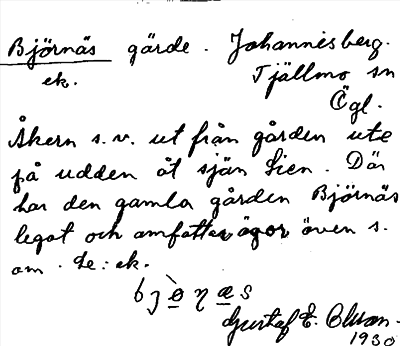 Björnäs gärde. Johannisberg.
ek. Tjällmo sn
Ögl.
Åkern s.v. ut från gården ute
på udden åt sjön Lien. Där
har den gamla gården Björnäs
legat och omfattar ägor även s.
om. Le: ek.
Gustaf E.
1930